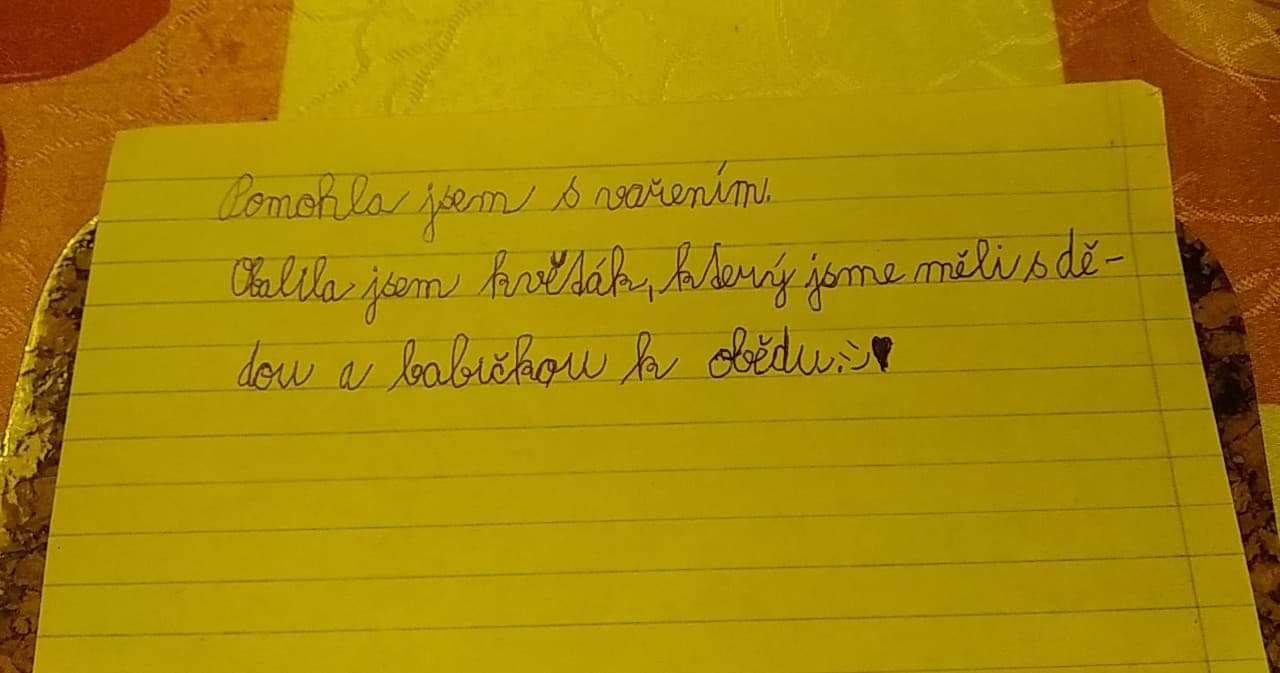 Pomohla jsem s vařením.
Obalila jsem květák, který jsme měli s dě-
dou a babičkou k obědu.:)♥